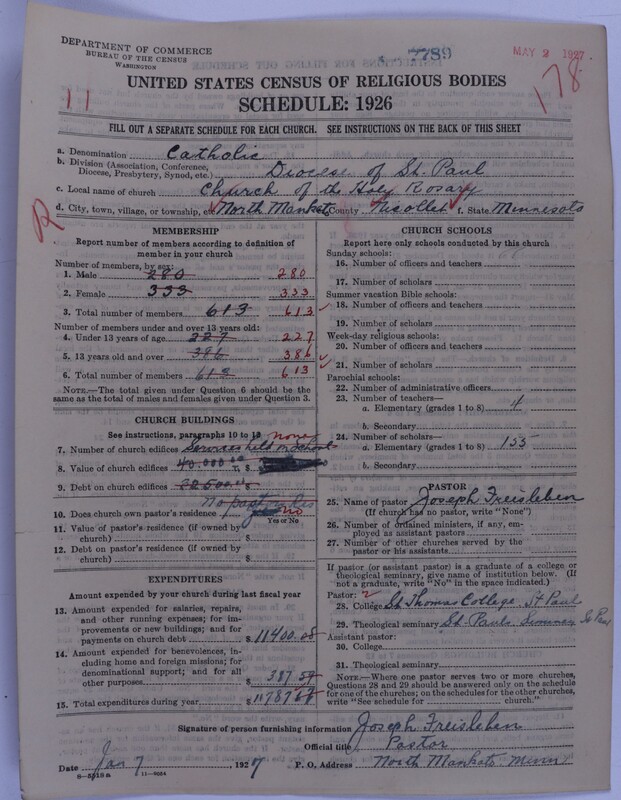 DEPARTMENT OF COMMERCE
BUREAU OF THE CENSUS
WASHINGTON
7789
MAY 2 1927
178
11
UNITED STATES CENSUS OF RELIGIOUS BODIES
SCHEDULE: 1926
FILL OUT A SEPARATE SCHEDULE FOR EACH CHURCH. SEE INSTRUCTIONS ON THE BACK OF THIS SHEET
a. Denomination Catholic
b. Division (Association, Conference, Diocese, Presbytery, Synod, etc.) Diocese of St. Paul
c. Local name of church Church of the Holy Rosary
R
d. City, town, village, or township, etc. North Mankato County Nicollet f. State Minnesota
MEMBERSHIP
Report number of members according to definition of member in your church
Number of members, by sex:
1. Male 280 280
2. Female 333 333
3. Total number of members 613 613
Number of members under and over 13 years old:
4. Under 13 years of age 227 227
5. 13 years old and over 386 386
6. Total number of members 613 613
NOTE.—The total given under Question 6 should be the same as the total of males and females given under Question 3.
CHURCH BUILDINGS
See instructions, paragraphs 10 to 13 none
7. Number of church edifices Services held in school
8. Value of church edifices 40,000.00 $
9. Debt on church edifices 22500.00 $
No
10. Does church own pastor's residence? no
Yes or No
11. Value of pastor's residence (if owned by church) $
12. Debt on pastor's residence (if owned by church) $
EXPENDITURES
Amount expended by your church during last fiscal year
13. Amount expended for salaries, repairs, and other running expenses; for improvements or new buildings; and for payments on church debt $ 11400.08
14. Amount expended for benevolences, including home and foreign missions; for denominational support; and for all other purposes $ 387.59
15. Total expenditures during year $ 11787.67
CHURCH SCHOOLS
Report here only schools conducted by this church
Sunday schools:
16. Number of officers and teachers
17. Number of scholars
Summer vacation Bible schools:
18. Number of officers and teachers
19. Number of scholars
Week-day religious schools:
20. Number of officers and teachers
21. Number of scholars
Parochial schools:
22. Number of administrative officers
23. Number of teachers—
a. Elementary (grades 1 to 8) 4
b. Secondary
24. Number of scholars—
a. Elementary (grades 1 to 8) 155
b. Secondary
PASTOR
25. Name of pastor Joseph Freisleben
(If church has no pastor, write "None")
26. Number of ordained ministers, if any, employed as assistant pastors
27. Number of other churches served by the pastor or his assistants
If pastor (or assistant pastor) is a graduate of a college or theological seminary, give name of institution below. (If not a graduate, write "No" in the space indicated.)
Pastor: 2
28. College St. Thomas College St Paul
29. Theological seminary St. Pauls Seminary St Paul
Assistant pastor:
30. College
31. Theological seminary
NOTE.—Where one pastor serves two or more churches, Questions 28 and 29 should be answered only on the schedule for one of the churches; on the schedules for the other churches, write "See schedule for church."
Signature of person furnishing information Joseph Freisleben
Official title Pastor
Date Jan 7 1927 P. O. Address North Mankato Minn
8-5518a 11-9024